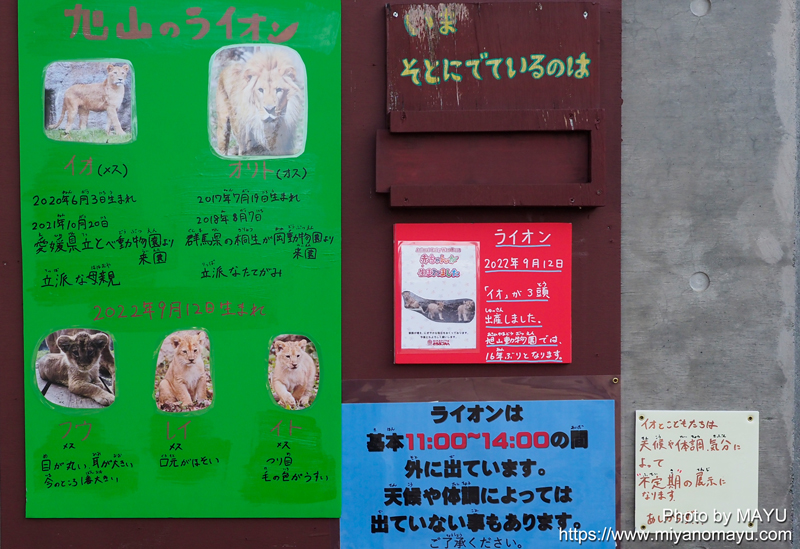 旭山のライオン
イオ(メス)
2020年6月3日生まれ
2021年10月20日
愛媛県立とべ動物園より
来園
立派な母親
オリト(オス)
2017年7月19日生まれ
2018年8月7日
群馬県の桐生が岡動物園より
来園
立派なたてがみ
2022年9月12日生まれ
フウ
メス
目が丸い 耳が大きい
今のところ1番大きい
レイ
メス
口先がほそい
イト
メス
つり目
毛の色がうすい
いま
そとにでているのは
ライオン
2022年9月12日
「イオ」が3頭
出産しました。
旭山動物園では、
16年ぶりとなります。
赤ちゃんが
生まれました
ライオンは
基本11:00~14:00の間
外に出ています。
天候や体調によっては
出ていない事もあります。
ご了承ください。
イオとこどもたちは
天候や体調、気分に
よって
不定期の展示に
なります
Photo by MAYU
https://www.miyanomayu.com/